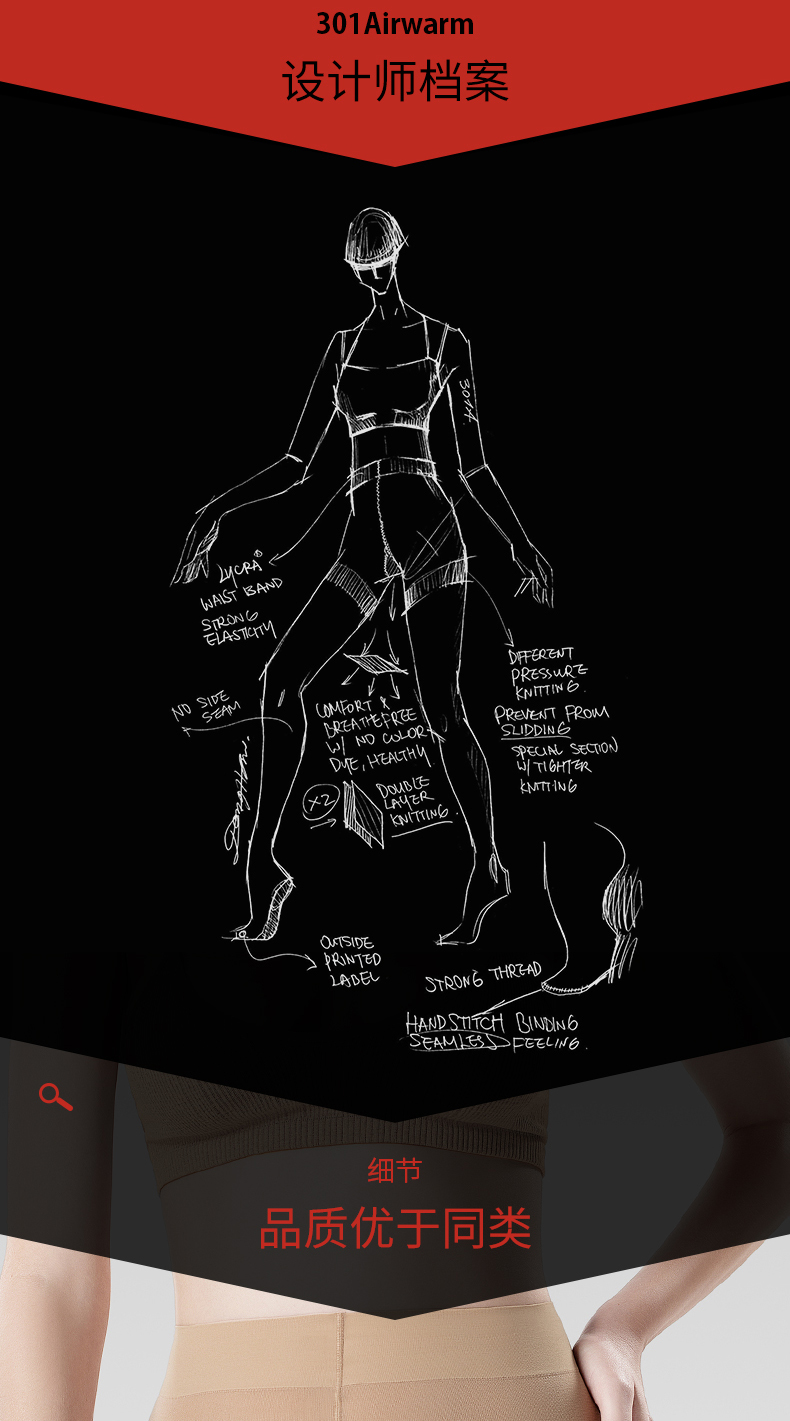 301Airwarm
设计师档案
301A.
LYCRA®
WAIST BAND
STRONG
ELASTICITY
NO SIDE
SEAM
COMFORT &
BREATHEFREE
W/ NO COLOR
DYE, HEALTHY.
X2
DOUBLE
LAYER
KNITTING.
DIFFERENT
PRESSURE
KNITTING.
PREVENT FROM
SLIDDING
SPECIAL SECTION
W/ TIGHTER
KNITTING
OUTSIDE
PRINTED
LABEL
STRONG THREAD
HANDSTITCH BINDING
SEAMLESS FEELING.
细节
品质优于同类